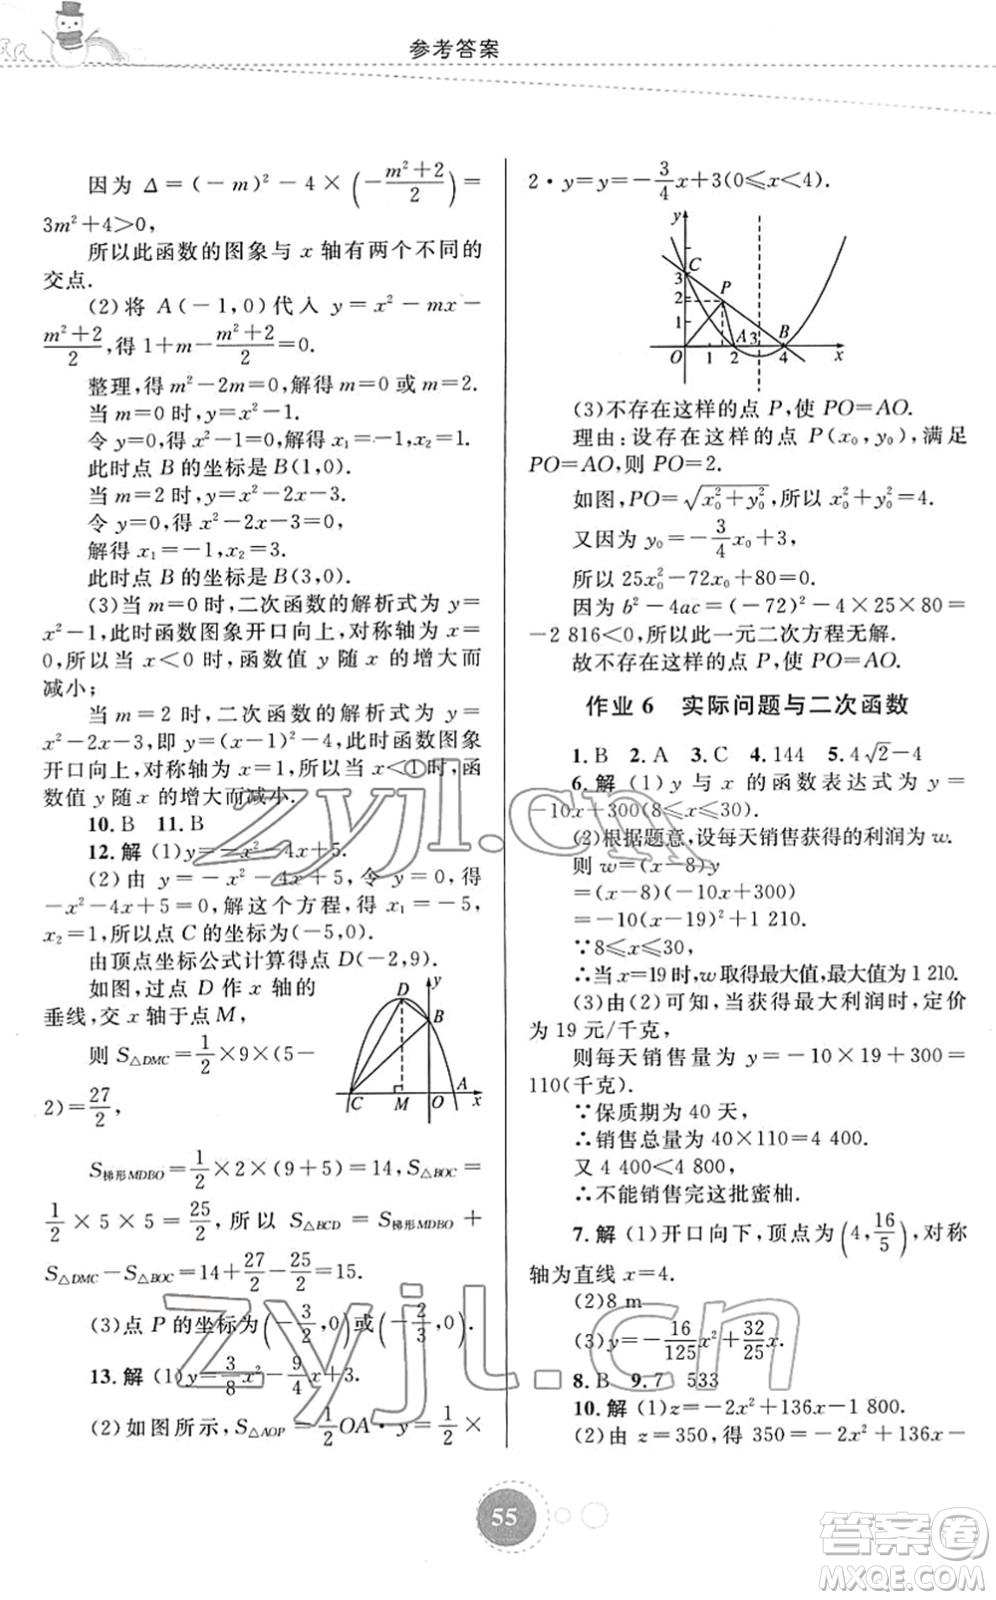 参考答案
因为 Δ=(-m)²-4×(-(m²+2)/2)=
3m²+4>0,
所以此函数的图象与 x 轴有两个不同的
交点.
(2)将 A(-1,0)代入 y=x²-mx-
(m²+2)/2,得 1+m-(m²+2)/2=0.
整理,得 m²-2m=0,解得 m=0 或 m=2.
当 m=0 时,y=x²-1.
令 y=0,得 x²-1=0,解得 x₁=-1,x₂=1.
此时点 B 的坐标是 B(1,0).
当 m=2 时,y=x²-2x-3.
令 y=0,得 x²-2x-3=0,
解得 x₁=-1,x₂=3.
此时点 B 的坐标是 B(3,0).
(3)当 m=0 时,二次函数的解析式为 y=
x²-1,此时函数图象开口向上,对称轴为 x=
0,所以当 x<0 时,函数值 y 随 x 的增大而
减小;
当 m=2 时,二次函数的解析式为 y=
x²-2x-3,即 y=(x-1)²-4,此时函数图象
开口向上,对称轴为 x=1,所以当 x<1 时,函
数值 y 随 x 的增大而减小.
10. B 11. B
12. 解 (1)y=-x²-4x+5.
(2)由 y=-x²-4x+5,令 y=0,得
-x²-4x+5=0,解这个方程,得 x₁=-5,
x₂=1,所以点 C 的坐标为(-5,0).
由顶点坐标公式计算得点 D(-2,9).
如图,过点 D 作 x 轴的
垂线,交 x 轴于点 M,
则 S△DMC=1/2×9×(5-
2)=27/2,
y D B C M O A x
S梯形MDBO=1/2×2×(9+5)=14,S△BOC=
1/2×5×5=25/2,所以 S△BCD=S梯形MDBO+
S△DMC-S△BOC=14+27/2-25/2=15.
(3)点 P 的坐标为(-3/2,0)或(-2/3,0).
13. 解 (1)y=3/8x²-9/4x+3.
(2)如图所示,S△AOP=1/2OA·y=1/2×
2·y=y=-3/4x+3(0≤x<4).
y C 3 P 2 1 O 1 2 A 3 B 4 x
(3)不存在这样的点 P,使 PO=AO.
理由:设存在这样的点 P(x₀,y₀),满足
PO=AO,则 PO=2.
如图,PO=√(x₀²+y₀²),所以 x₀²+y₀²=4.
又因为 y₀=-3/4x₀+3,
所以 25x₀²-72x₀+80=0.
因为 b²-4ac=(-72)²-4×25×80=
-2 816<0,所以此一元二次方程无解.
故不存在这样的点 P,使 PO=AO.
作业 6 实际问题与二次函数
1. B 2. A 3. C 4. 144 5. 4√2-4
6. 解 (1)y 与 x 的函数表达式为 y=
-10x+300(8≤x≤30).
(2)根据题意,设每天销售获得的利润为 w.
则 w=(x-8)y
=(x-8)(-10x+300)
=-10(x-19)²+1 210.
∵8≤x≤30,
∴当 x=19 时,w 取得最大值,最大值为 1 210.
(3)由(2)可知,当获得最大利润时,定价
为 19 元/千克,
则每天销售量为 y=-10×19+300=
110(千克).
∵保质期为 40 天,
∴销售总量为 40×110=4 400.
又 4 400<4 800,
∴不能销售完这批蜜柚.
7. 解 (1)开口向下,顶点为(4,16/5),对称
轴为直线 x=4.
(2)8 m
(3)y=-16/125x²+32/25x.
8. B 9. 7 533
10. 解 (1)z=-2x²+136x-1 800.
(2)由 z=350,得 350=-2x²+136x-
55
zyjl.cn
zyjl.cn
答案卷
MXQE.COM